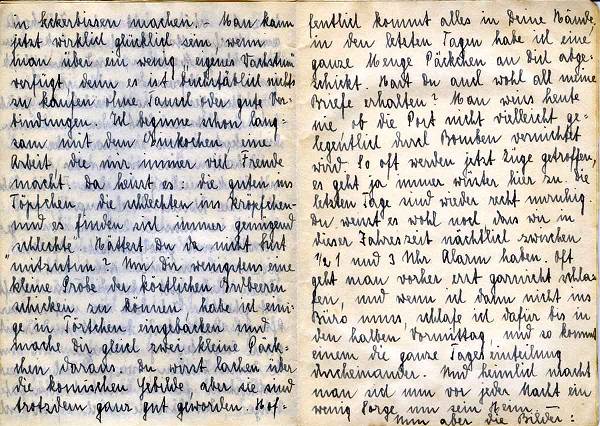 in Leckerbissen machen. – Man kann
jetzt wirklich glücklich sein, wenn
man über ein wenig "eigenes Wachstum"
verfügt, denn es ist buchstäblich nichts
zu kaufen ohne Tausch oder gute Ver-
bindungen. Ich beginne schon lang-
sam mit dem Einkochen eine
Arbeit, die mir immer viel Freude
macht. Da heisst es die guten ins
Töpfchen die schlechten ins Kröpfchen
und es finden sich immer genügend
schlechte. Hättest Du da nicht Lust
"mitzutun"? Um Dir wenigstens eine
kleine Probe der köstlichen Erdbeeren
schicken zu können, habe ich eini-
ge in Törtchen eingebacken und
mache Dir gleich zwei kleine Päck-
chen daraus. Du wirst lachen über
die komischen Gebilde, aber sie sind
trotzdem ganz gut geworden. Hof-
fentlich kommt alles in Deine Hände,
in den letzten Tagen habe ich eine
ganze Menge Päckchen an Dich abge-
schickt. Hast Du auch wohl all meine
Briefe erhalten? Man weiss heute
nie, ob die Post nicht vielleicht ge-
legentlich durch Bomben vernichtet
wird. So oft werden jetzt Züge getroffen,
es geht ja immer wüster hier zu. Die
letzten Tage sind wieder recht unruhig.
Du weisst es wohl noch dass wir in
dieser Jahreszeit nächtlich zwischen
1/2 1 und 3 Uhr Alarm haben. Oft
geht man vorher erst garnicht schla-
fen, und wenn ich dann nicht ins
Büro muss, schlafe ich dafür bis in
den halben Vormittag, und so kommt
einem die ganze Tageseinteilung
durcheinander. Und heimlich macht
man sich nun vor jeder Nacht ein
wenig Sorge um sein Heim. –
Nun aber die Bilder: